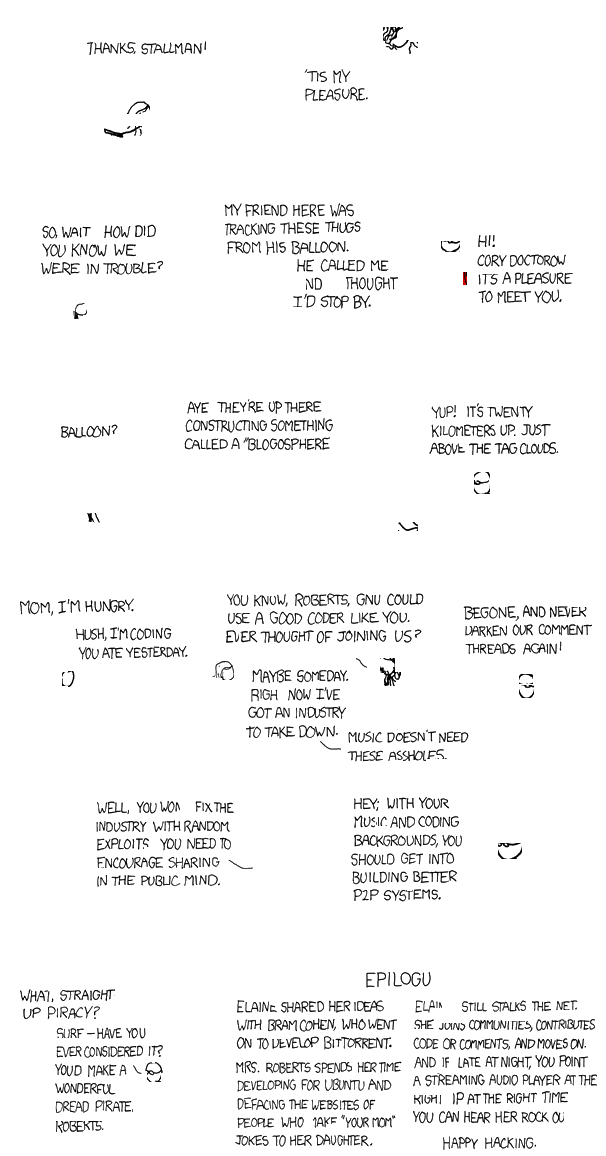 THANKS, STALLMAN!
'TIS MY
PLEASURE.
SO, WAIT HOW DID
YOU KNOW WE
WERE IN TROUBLE?
MY FRIEND HERE WAS
TRACKING THESE THUGS
FROM HIS BALLOON.
HE CALLED ME
ND THOUGHT
I'D STOP BY.
HI!
CORY DOCTOROW
IT'S A PLEASURE
TO MEET YOU.
BALLOON?
AYE THEY'RE UP THERE
CONSTRUCTING SOMETHING
CALLED A "BLOGOSPHERE
YUP! IT'S TWENTY
KILOMETERS UP. JUST
ABOVE THE TAG CLOUDS.
MOM, I'M HUNGRY.
HUSH, I'M CODING
YOU ATE YESTERDAY.
YOU KNOW, ROBERTS, GNU COULD
USE A GOOD CODER LIKE YOU.
EVER THOUGHT OF JOINING US?
MAYBE SOMEDAY.
RIGH NOW I'VE
GOT AN INDUSTRY
TO TAKE DOWN.
MUSIC DOESN'T NEED
THESE ASSHOLES.
BEGONE, AND NEVER
DARKEN OUR COMMENT
THREADS AGAIN!
WELL, YOU WON FIX THE
INDUSTRY WITH RANDOM
EXPLOITS YOU NEED TO
ENCOURAGE SHARING
IN THE PUBLIC MIND.
HEY, WITH YOUR
MUSIC AND CODING
BACKGROUNDS, YOU
SHOULD GET INTO
BUILDING BETTER
P2P SYSTEMS.
WHAT, STRAIGHT
UP PIRACY?
SURE — HAVE YOU
EVER CONSIDERED IT?
YOU'D MAKE A
WONDERFUL
DREAD PIRATE,
ROBERTS.
EPILOGU
ELAINE SHARED HER IDEAS
WITH BRAM COHEN, WHO WENT
ON TO DEVELOP BITTORRENT.
MRS. ROBERTS SPENDS HER TIME
DEVELOPING FOR UBUNTU AND
DEFACING THE WEBSITES OF
PEOPLE WHO MAKE "YOUR MOM"
JOKES TO HER DAUGHTER.
ELAIN STILL STALKS THE NET.
SHE JOINS COMMUNITIES, CONTRIBUTES
CODE OR COMMENTS, AND MOVES ON.
AND IF LATE AT NIGHT, YOU POINT
A STREAMING AUDIO PLAYER AT THE
RIGHT IP AT THE RIGHT TIME
YOU CAN HEAR HER ROCK OU
HAPPY HACKING.